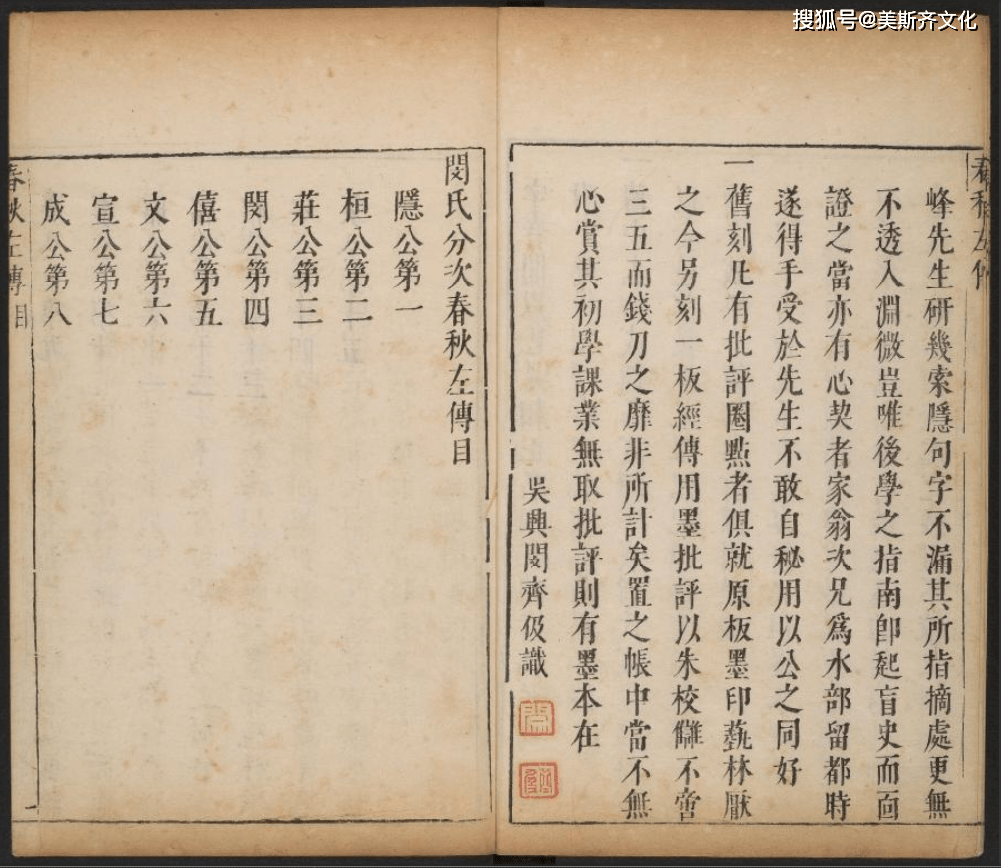 搜狐号@美斯齐文化
春秋左傳
峰先生研幾索隱句字不漏其所指摘處更無
不透入淵微豈唯後學之指南卽起盲史而面
證之當亦有心契者家翁次兄爲水部留都時
遂得手受於先生不敢自秘用以公之同好
一舊刻凡有批評圈點者俱就原板墨印藝林厭
之今另刻一板經傳用墨批評以朱校讎不啻
三五而錢刀之靡非所計矣置之帳中當不無
心賞其初學課業無取批評則有墨本在
吳興閔齊伋識
閔氏分次春秋左傳目
隱公第一
桓公第二
莊公第三
閔公第四
僖公第五
文公第六
宣公第七
成公第八
春秋左傳目
一